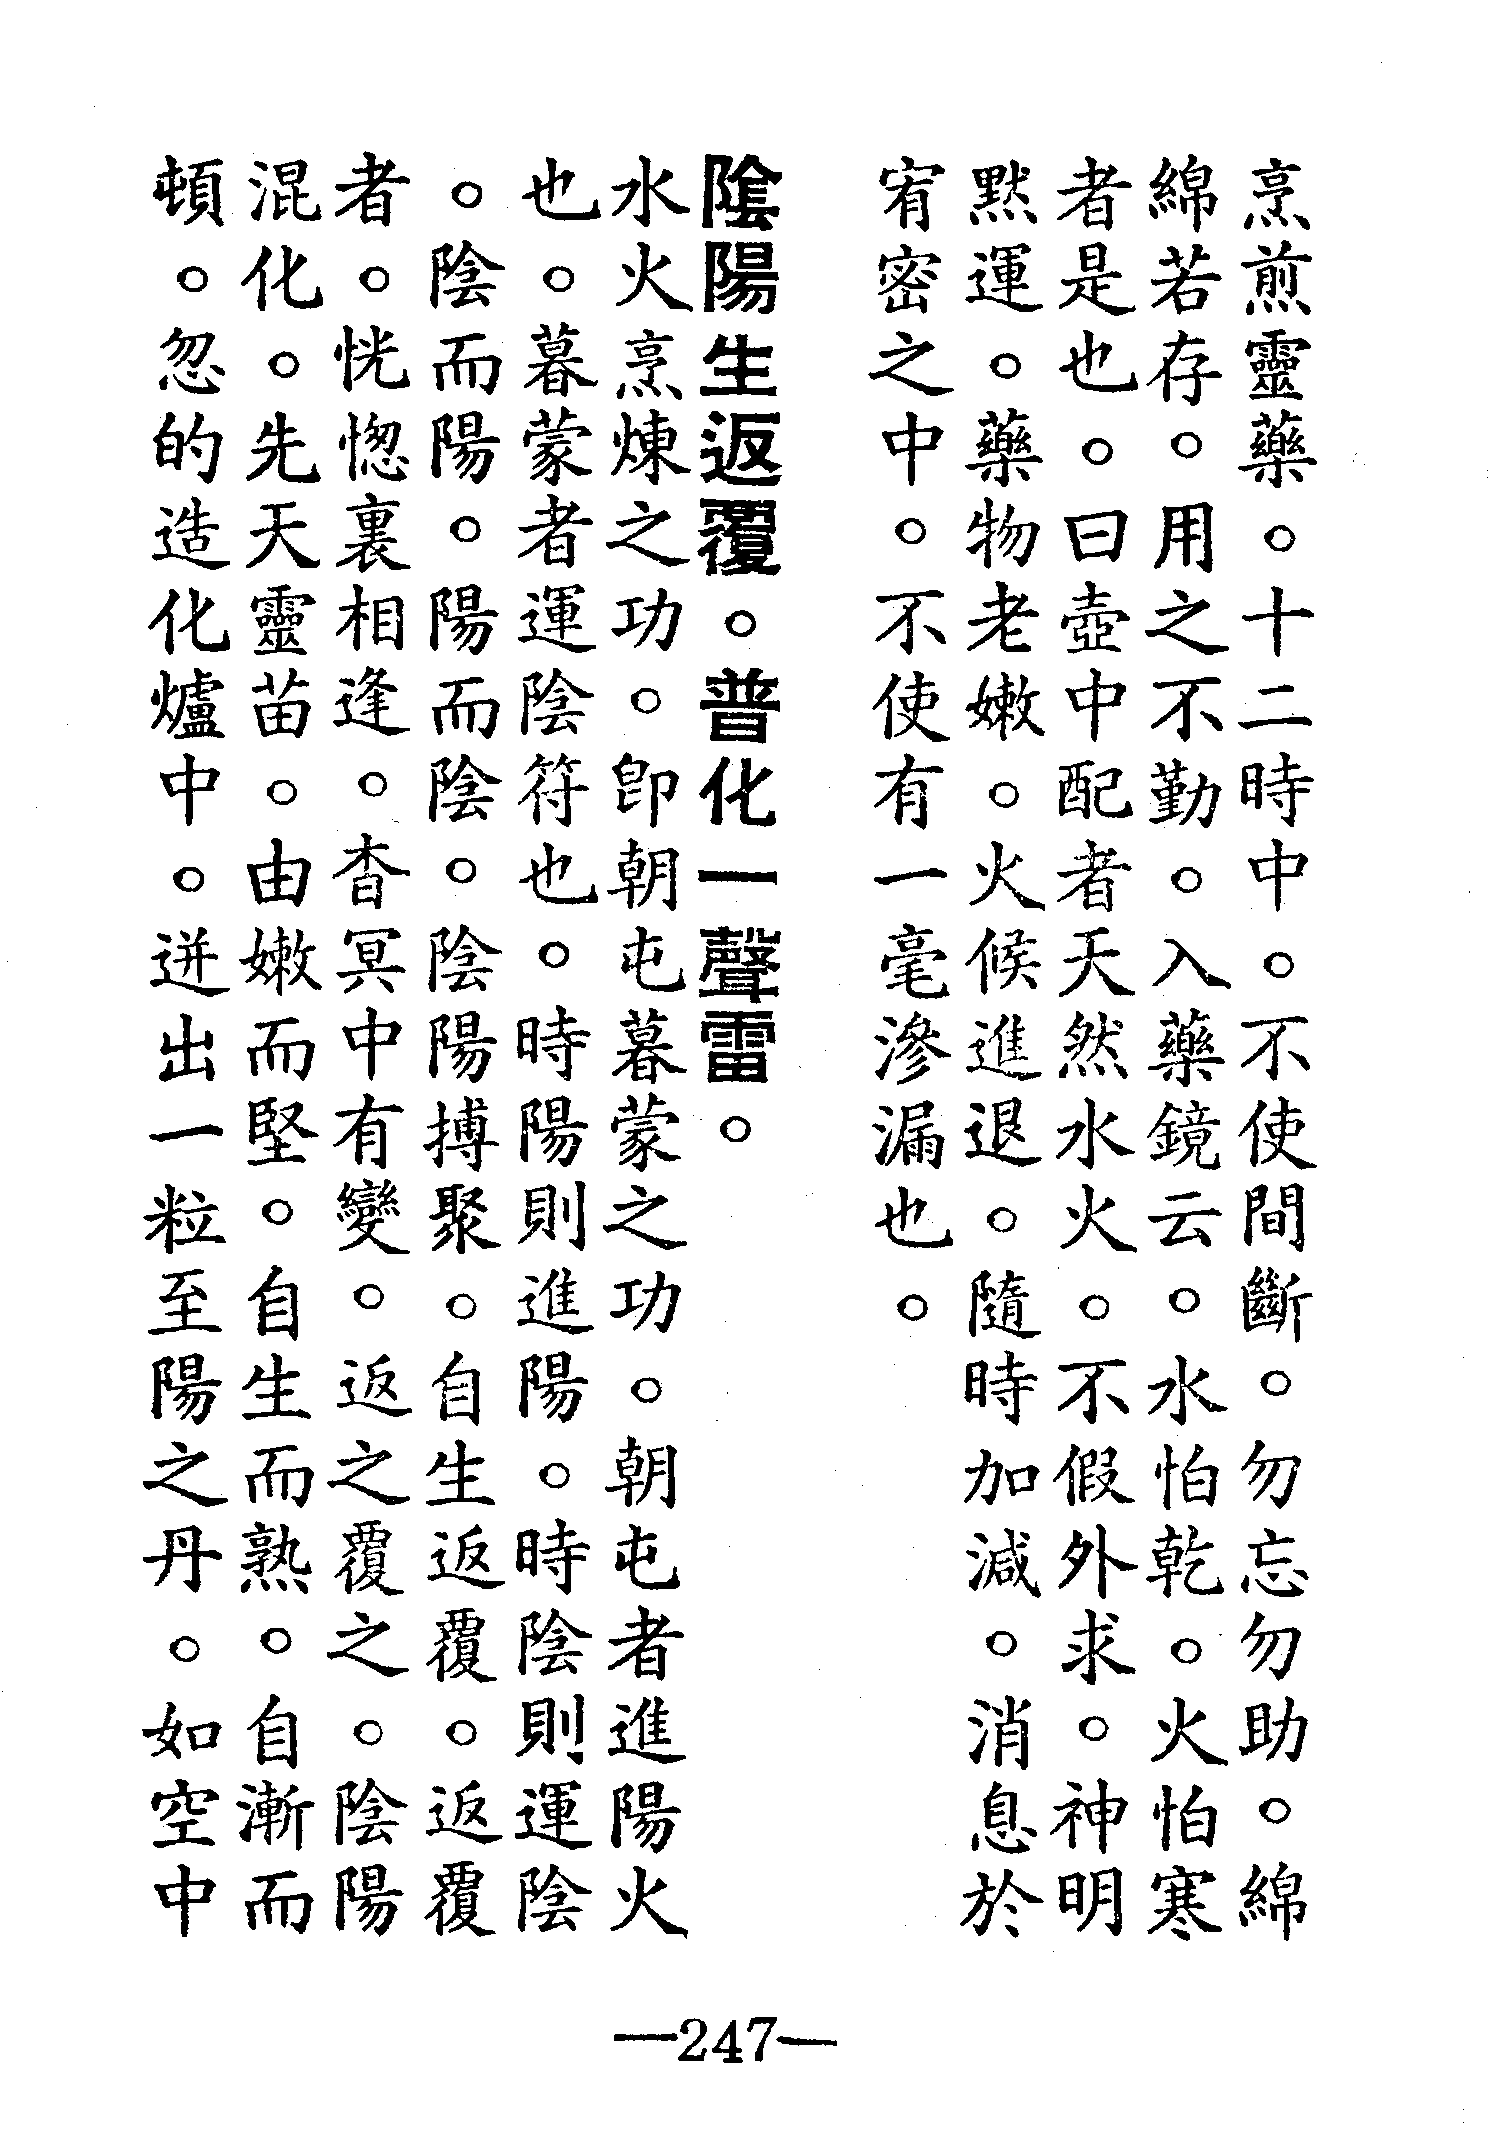 烹煎靈藥。十二時中。不使間斷。勿忘勿助。綿
綿若存。用之不勤。入藥鏡云。水怕乾。火怕寒
者是也。曰壺中配者天然水火。不假外求。神明
默運。藥物老嫩。火候進退。隨時加減。消息於
宥密之中。不使有一毫滲漏也。
陰陽生返覆。普化一聲雷。
水火烹煉之功。即朝屯暮蒙之功。朝屯者進陽火
也。暮蒙者運陰符也。時陽則進陽。時陰則運陰
。陰而陽。陽而陰。陰陽搏聚。自生返覆。返覆
者。恍惚裏相逢。杳冥中有變。返之覆之。陰陽
混化。先天靈苗。由嫩而堅。自生而熟。自漸而
頓。忽的造化爐中。迸出一粒至陽之丹。如空中
—247—